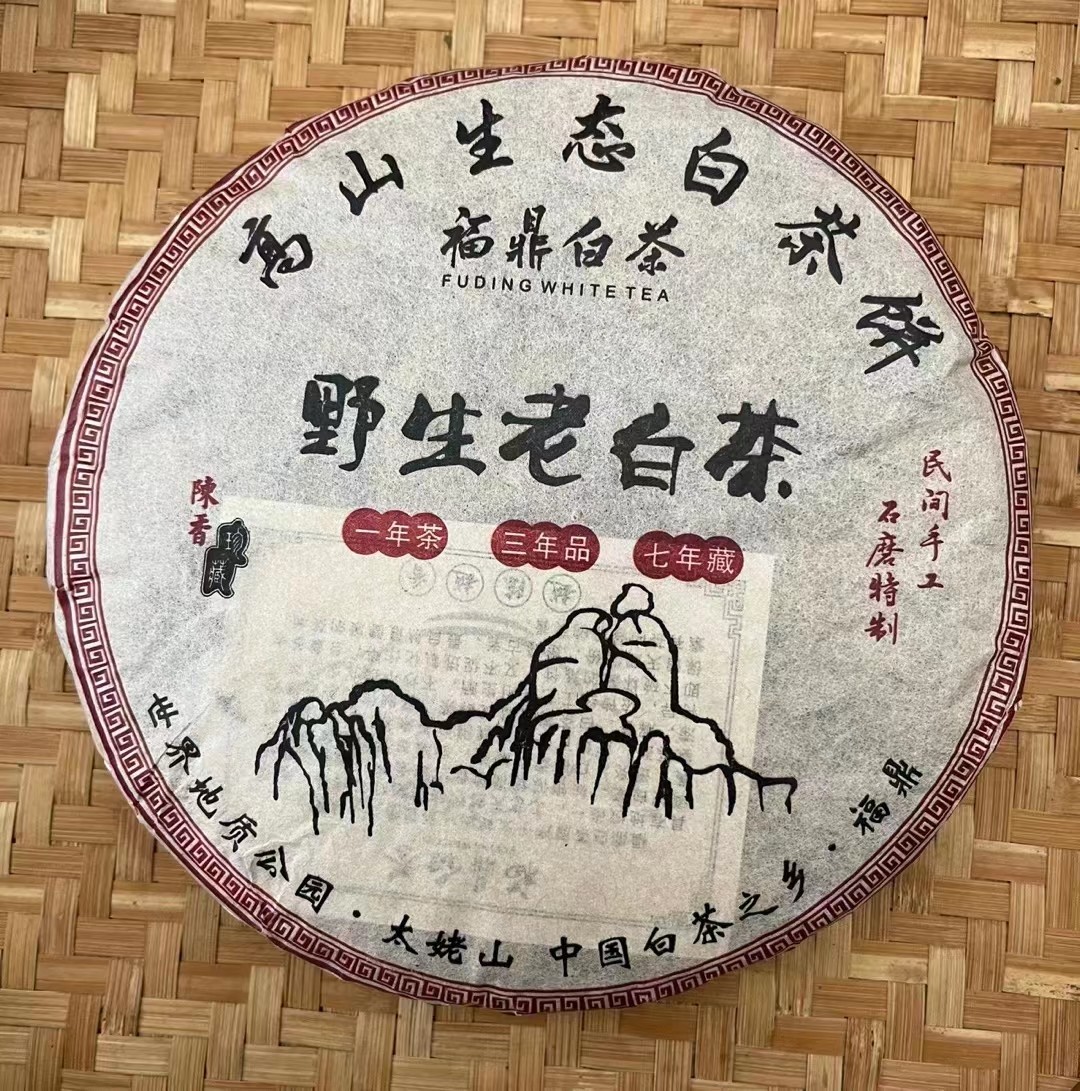 高山生态白茶饼
福鼎白茶
FUDING WHITE TEA
野生老白茶
一年茶 三年品 七年藏
陳香
珍藏
民间手工
石磨特制
世界地质公园·太姥山 中国白茶之乡·福鼎